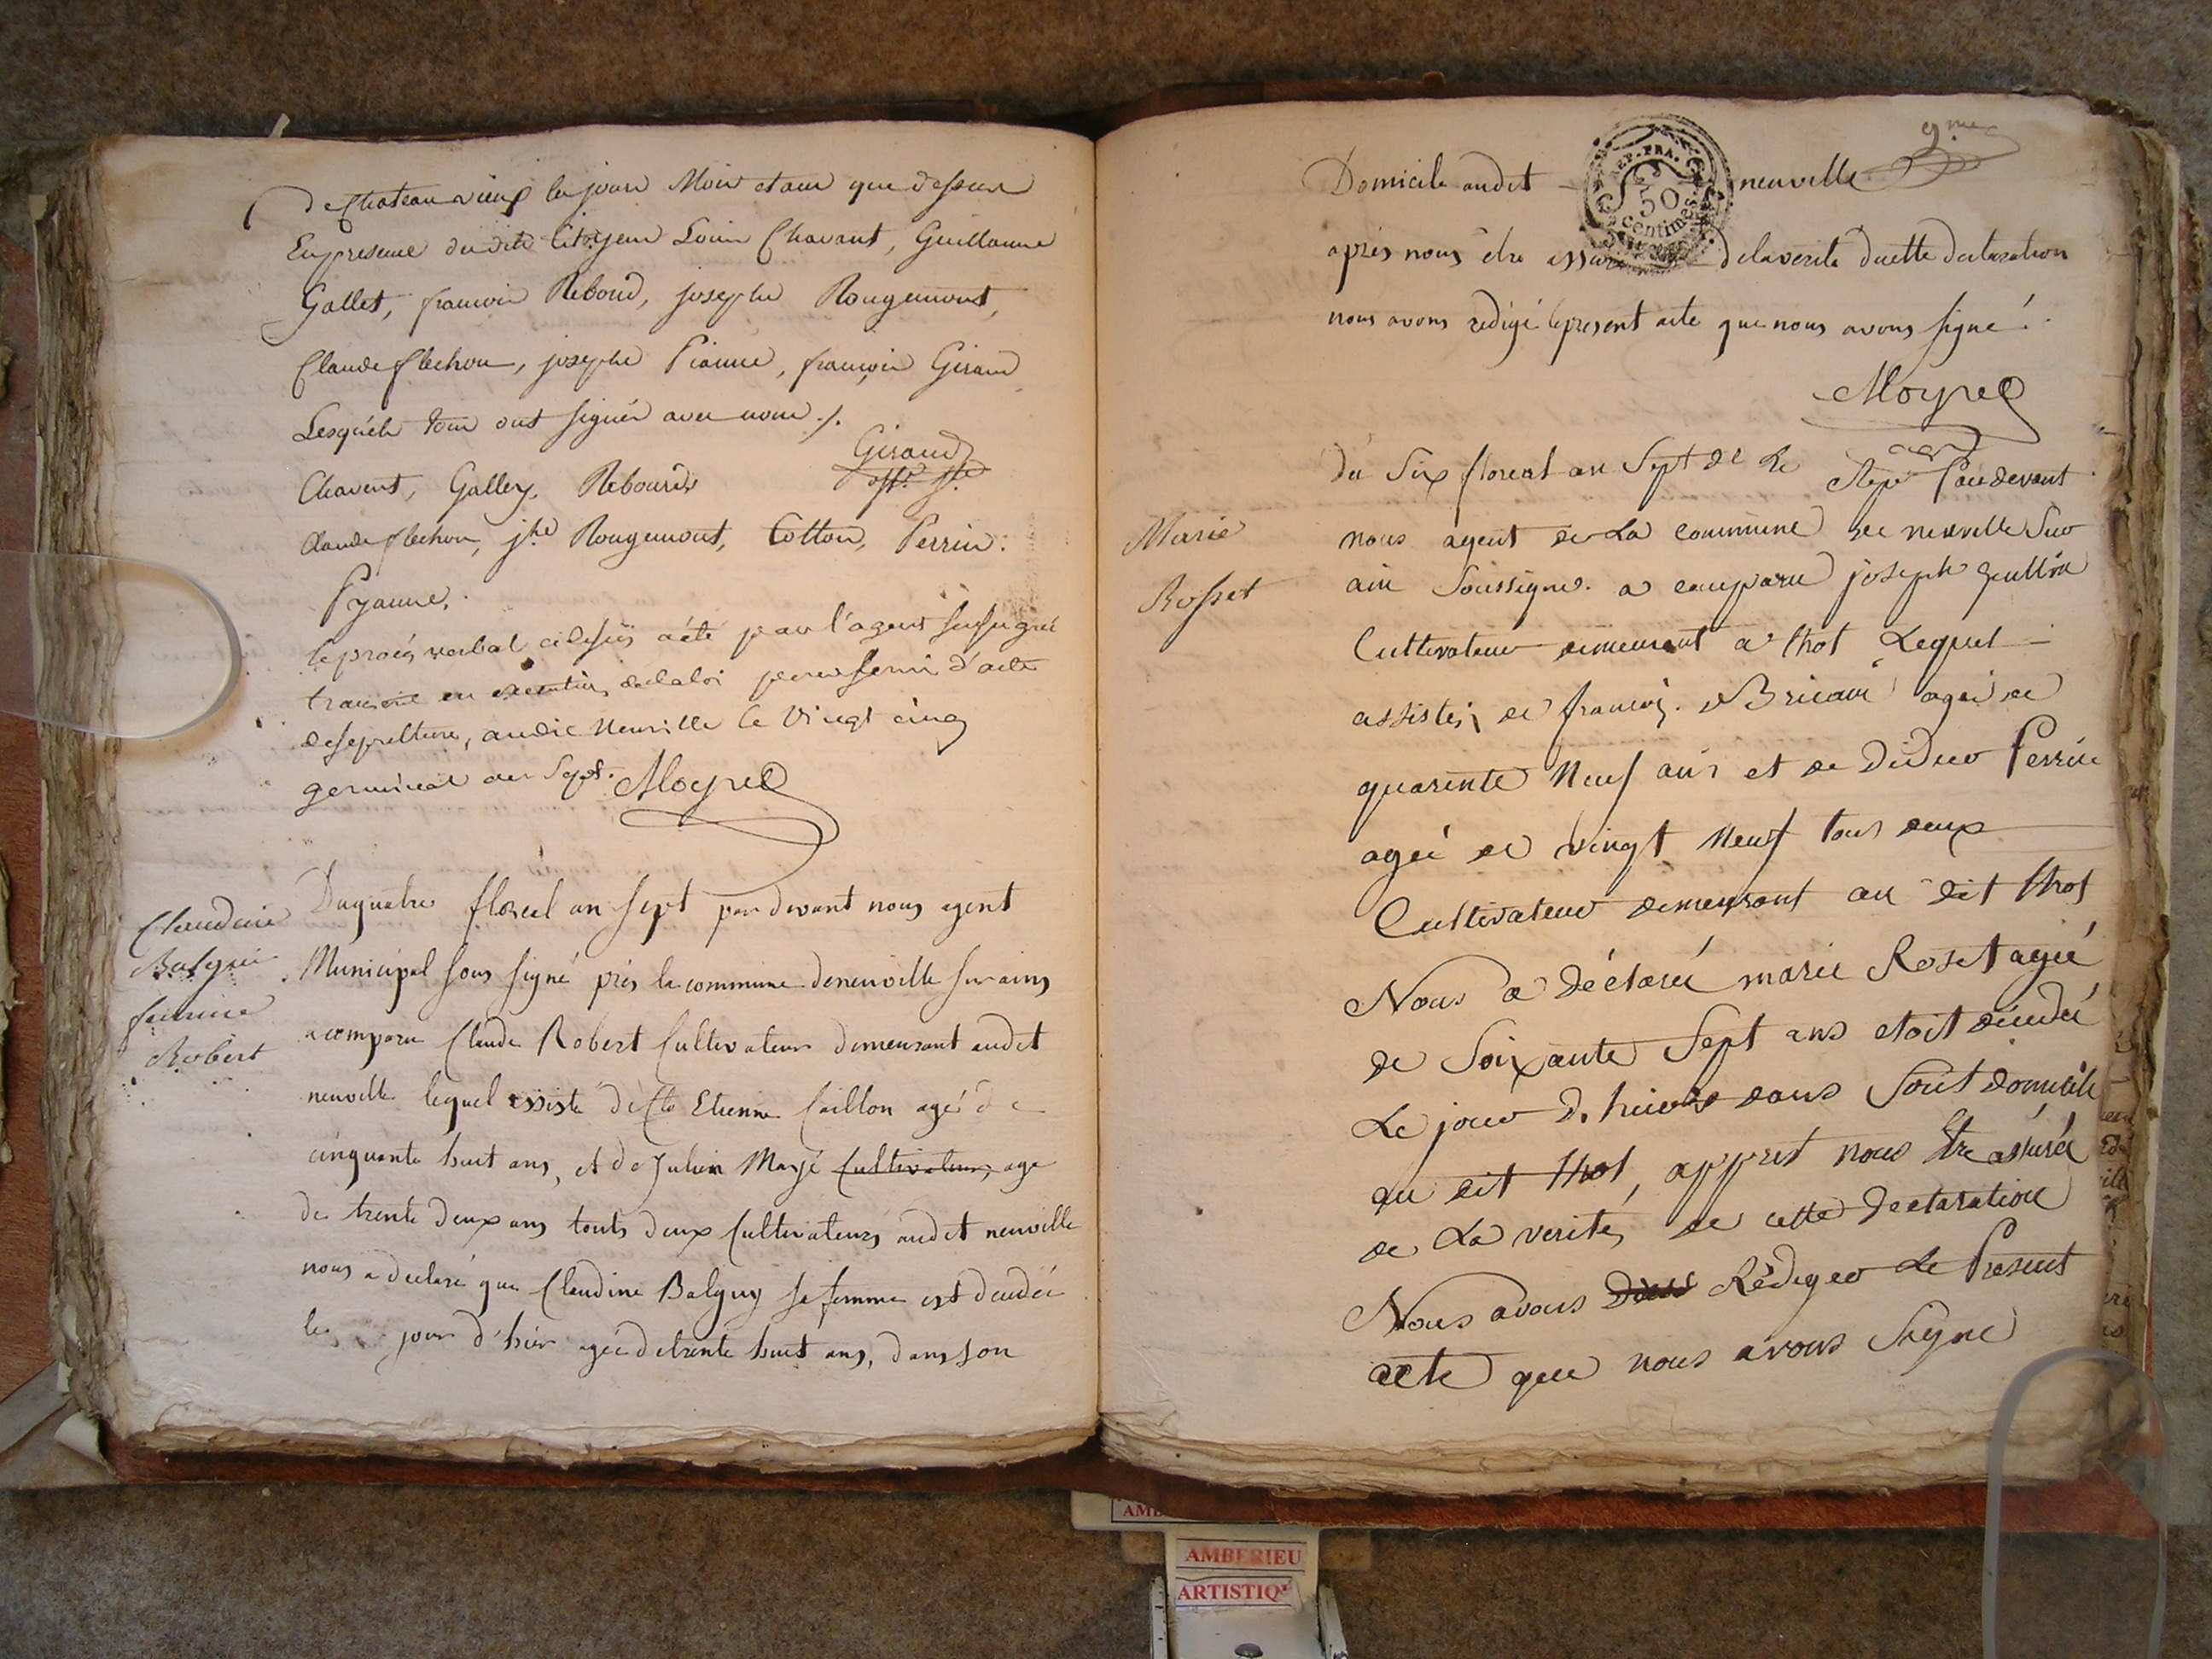 de Chateauvieux les jours Mois et an que dessus
En presence du dite Citoyens Louis Chavant, Guillaume
Gallet, francois Reboud, josephe Rougemont,
Claude flechon, josephe Pianne, françois Giraud
Lesquéls tous ont signés avec nous ./.
Giraud
Chavent, Galley, Rebourd
Claude flechon, jhe Rougemont, Cotton, Perrin.
Pyanne.
le procès verbal cidessus a été par l'agent soussigné
transcrit en execution de la loi pour servir d'acte
de sepulture, audit Neuville le vingt cinq
germinal an Sept. Moyret
Claudine
Balgui
femme
Robert
Du quatre floreal an sept par devant nous agent
Municipal sous signé près la commune de neuville sur ains
a comparu Claude Robert Cultivateur demeurant audit
neuville lequel assisté de Etienne Caillon agé de
cinquante huit ans, et de Julien Marjé Cultivateur, age
de trente deux ans touts deux Cultivateurs audit neuville
nous a declaré que Claudine Balguy sa femme est décedée
le jour d'hier agée de trente huit ans, dans son
9.me
Domicile audit neuville
REP. FRA.
50
Centimes
après nous être assuré de la verité de cette declaration
nous avons redigé le present acte que nous avons signé.
Moyret
agent
Marie
Rosset
du Six floreal an Sept de La Rep. Pardevant
nous agent de La commune de neuville Sur
ain Soussigné. a comparu joseph guillon
Cultivateur demeurant a thol Lequel
assistés de françois. Bricaud agé de
quarente Neuf ans et de Didier Perrin
agée de vingt Neuf tous deux
Cultivateur demeurant au dit thol
Nous a déclaré marie Roset agée
de Soixante Sept ans etoit décedée
Le jour d. hier dans Sont domicile
au dit thol, appret nous Etre assuré
de La verité, de cette declaration
Nous avons Rédiger Le Present
acte que nous avons Signe
AMBERIEU
ARTISTIQ